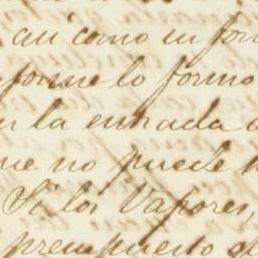 así como su for
forme lo formo
en la entrada a
que no puede h
Si los Vapores,
presupuesto de